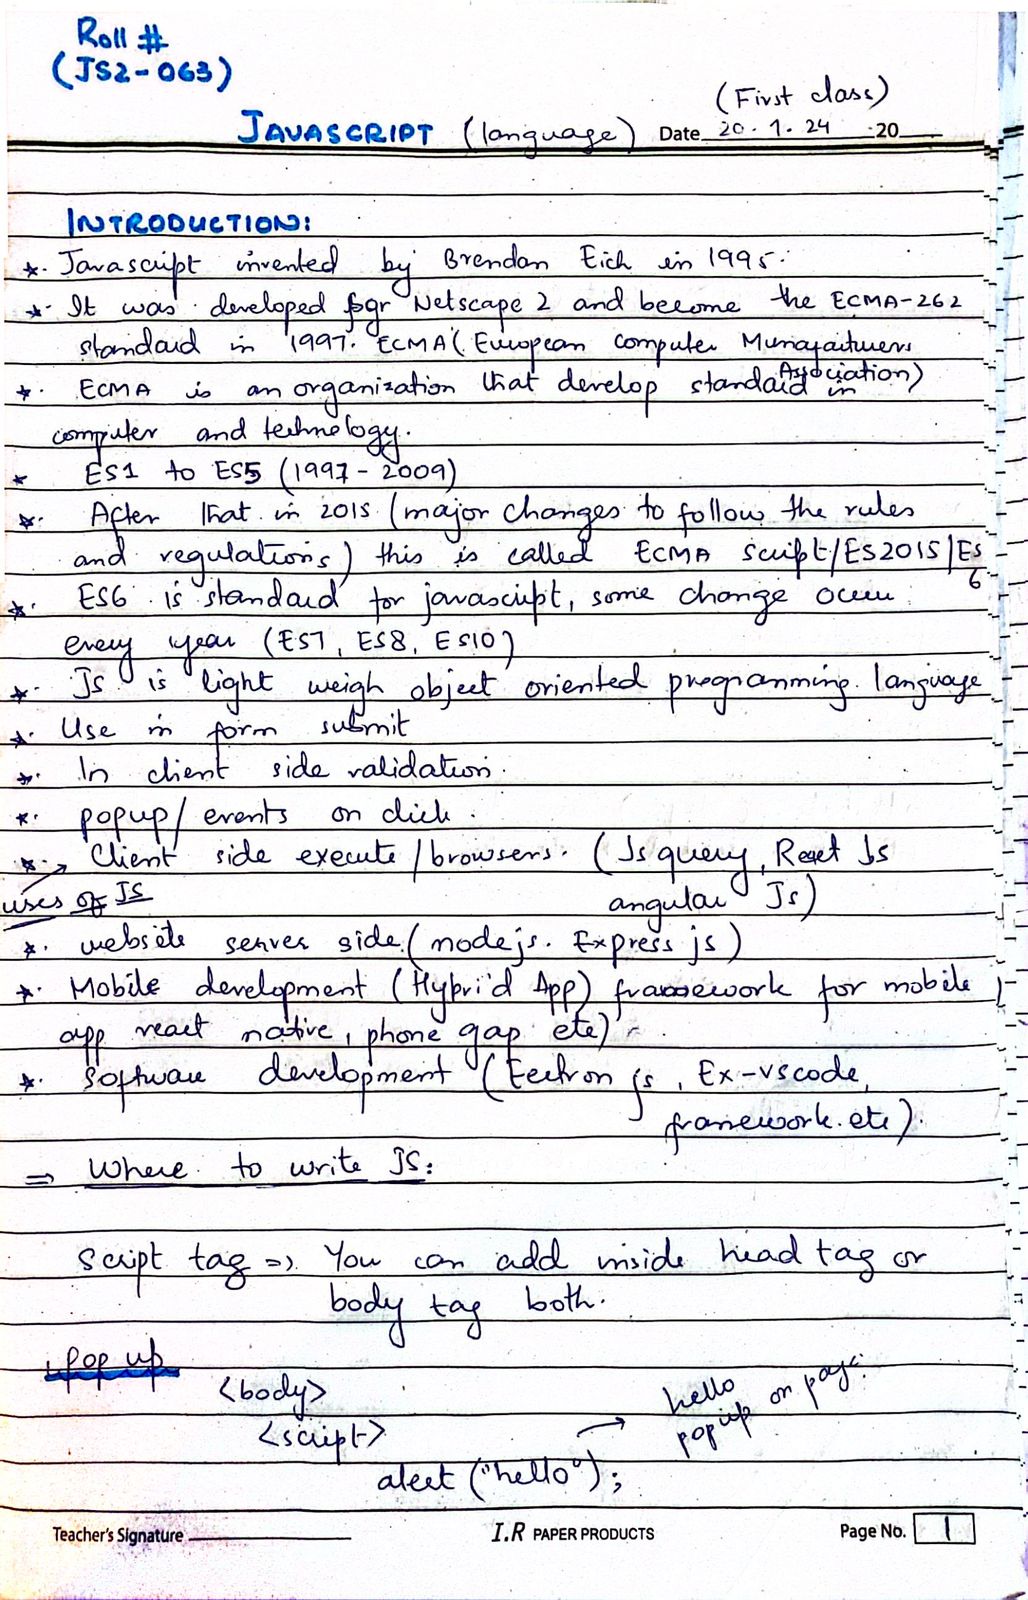 Roll #
(JS2-063)
(First class)
JAVASCRIPT (language) Date 20.1.24 20
INTRODUCTION:
*. Javascript invented by Brendan Eich in 1995.
*. It was developed for Netscape 2 and become the ECMA-262
standard in 1997. ECMA (European computer
Association)
*. ECMA is an organization that develop standard in
computer and technology.
* ES1 to ES5 (1997-2009)
*. After that in 2015 (major changes to follow the rules
and regulations) this is called ECMA script/ES2015/ES
6
*. ES6 is standard for javascript, some change occur
every year (ES7, ES8, ES10)
*. Js is light weigh object oriented programming language
*. Use in form submit
*. In client side validation.
*. popup/events on click.
*. → Client side execute/browsers. (Js query, React Js
uses of JS
angular Js)
*. website server side. (node js. Express js)
*. Mobile development (Hybrid App) framework for mobile
app react native, phone gap etc)
*. Software development (Eectron js, Ex-vscode,
framework. etc).
⇒ Where to write JS:
script tag => You can add inside head tag or
body tag both.
Pop up
<body>
<script>
hello
popup on page.
alert ("hello");
Teacher's Signature I.R PAPER PRODUCTS Page No. 1